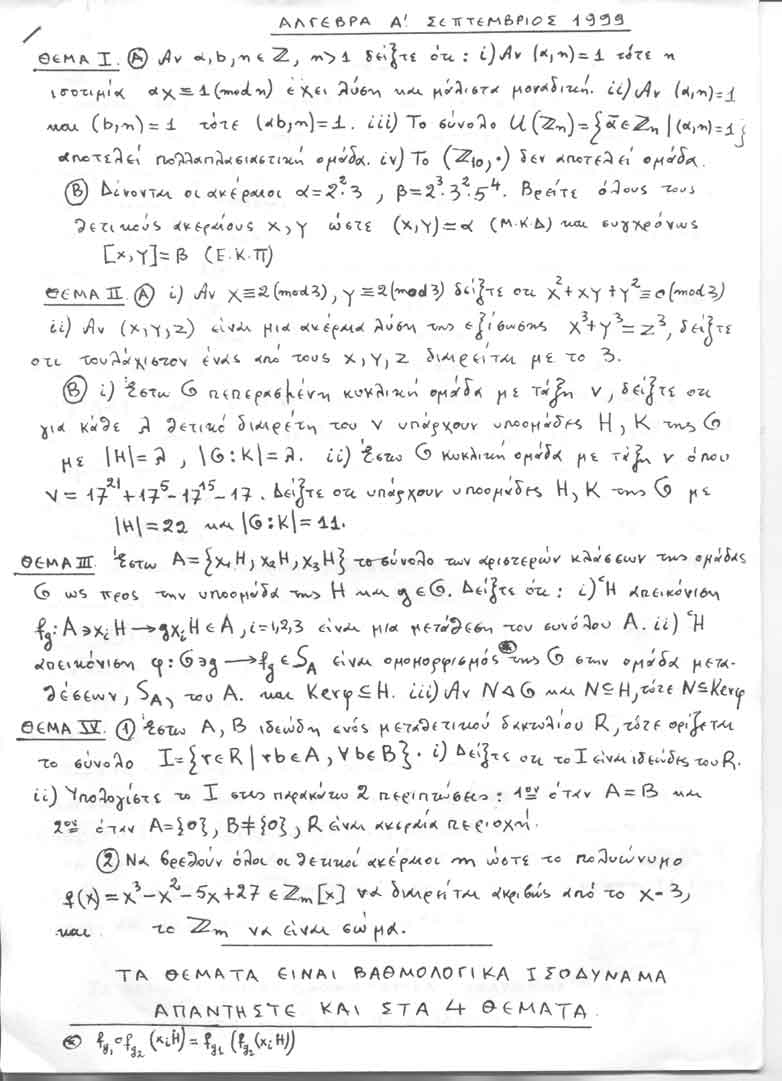 ΑΛΓΕΒΡΑ Α' ΣΕΠΤΕΜΒΡΙΟΣ 1999
ΘΕΜΑ I. Ⓐ Αν α,b,n∈Z, n>1 δείξτε ότι: i) Αν (α,n)=1 τότε η
ισοτιμία αx≡1(mod n) έχει λύση και μάλιστα μοναδική. ii) Αν (α,n)=1
και (b,n)=1 τότε (αb,n)=1. iii) Το σύνολο U(Zₙ)={ᾱ∈Zₙ|(α,n)=1}
αποτελεί πολλαπλασιαστική ομάδα. iv) Το (Z₁₀,·) δεν αποτελεί ομάδα.
Ⓑ Δίνονται οι ακέραιοι α=2²·3, β=2³·3²·5⁴. Βρείτε όλους τους
θετικούς ακεραίους x,y ώστε (x,y)=α (Μ.Κ.Δ) και συγχρόνως
[x,y]=β (Ε.Κ.Π)
ΘΕΜΑ II. Ⓐ i) Αν x≡2(mod3), y≡2(mod3) δείξτε οτι x²+xy+y²≡0(mod3)
ii) Αν (x,y,z) είναι μια ακέραια λύση της εξίσωσης x³+y³=z³, δείξτε
οτι τουλάχιστον ένας από τους x,y,z διαιρείται με το 3.
Ⓑ i) Έστω G πεπερασμένη κυκλική ομάδα με τάξη ν, δείξτε οτι
για κάθε λ θετικό διαιρέτη του ν υπάρχουν υποομάδες H, K της G
με |H|=λ, |G:K|=λ. ii) Έστω G κυκλική ομάδα με τάξη ν όπου
ν=17²¹+17⁵-17¹⁵-17. Δείξτε οτι υπάρχουν υποομάδες H, K της G με
|H|=22 και |G:K|=11.
ΘΕΜΑ III. Έστω A={x₁H, x₂H, x₃H} το σύνολο των αριστερών κλάσεων της ομάδας
G ως προς την υποομάδα της H και g∈G. Δείξτε ότι: i) Ή απεικόνιση
f_g: A∋xᵢH→gxᵢH∈A, i=1,2,3 είναι μια μετάθεση του συνόλου A. ii) Ή
απεικόνιση φ: G∋g→f_g∈S_A είναι ομομορφισμός⊛ της G στην ομάδα μετα-
θέσεων, S_A, του A. και Kerφ⊆H. iii) Αν NΔG και N⊆H, τότε N⊆Kerφ
ΘΕΜΑ IV. ① Έστω A, B ιδεώδη ενός μεταθετικού δακτυλίου R, τότε ορίζεται
το σύνολο I={r∈R|rb∈A, ∀b∈B}. i) Δείξτε οτι το I είναι ιδεώδες του R.
ii) Υπολογίστε το I στις παρακάτω 2 περιπτώσεις: 1ον όταν A=B και
2ον όταν A={0}, B≠{0}, R είναι ακεραία περιοχή.
② Να βρεθούν όλοι οι θετικοί ακέραιοι m ώστε το πολυώνυμο
f(x)=x³-x²-5x+27∈Zₘ[x] να διαιρείται ακριβώς από το x-3,
και το Zₘ να είναι σώμα.
ΤΑ ΘΕΜΑΤΑ ΕΙΝΑΙ ΒΑΘΜΟΛΟΓΙΚΑ ΙΣΟΔΥΝΑΜΑ
ΑΠΑΝΤΗΣΤΕ ΚΑΙ ΣΤΑ 4 ΘΕΜΑΤΑ.
⊛ f_g₁∘f_g₂(xᵢH)=f_g₁(f_g₂(xᵢH))